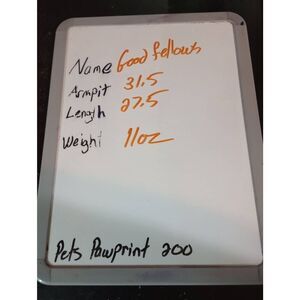 Name Good fellows
Armpit 31.5
Length 27.5
Weight 11oz
Pets Pawprint 200